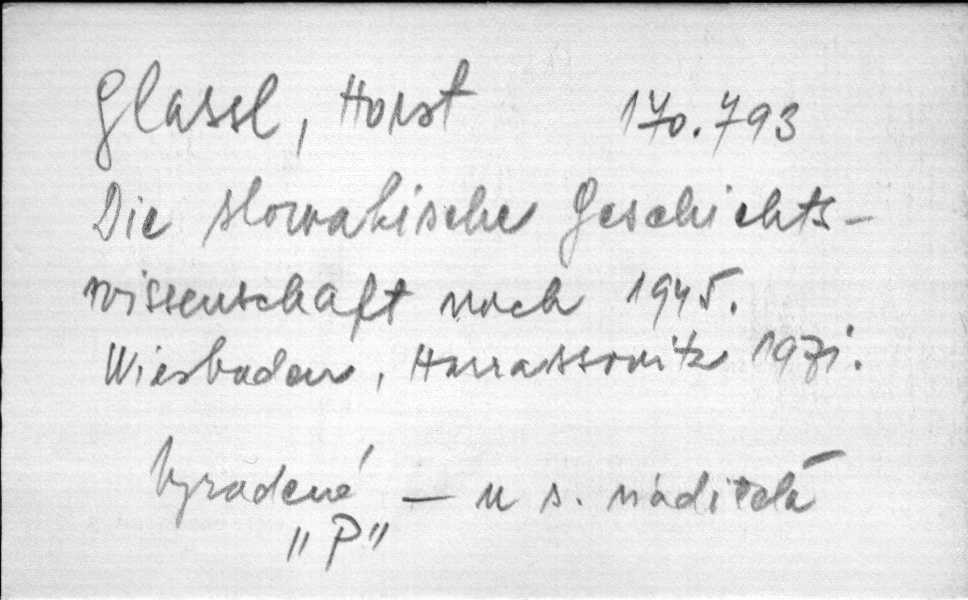 Glassl, Horst 170.793
Die slowakische Geschichts-
wissenschaft nach 1945.
Wiesbaden, Harrassowitz 1971.
Vyradené — u s. riaditeľa
"P"